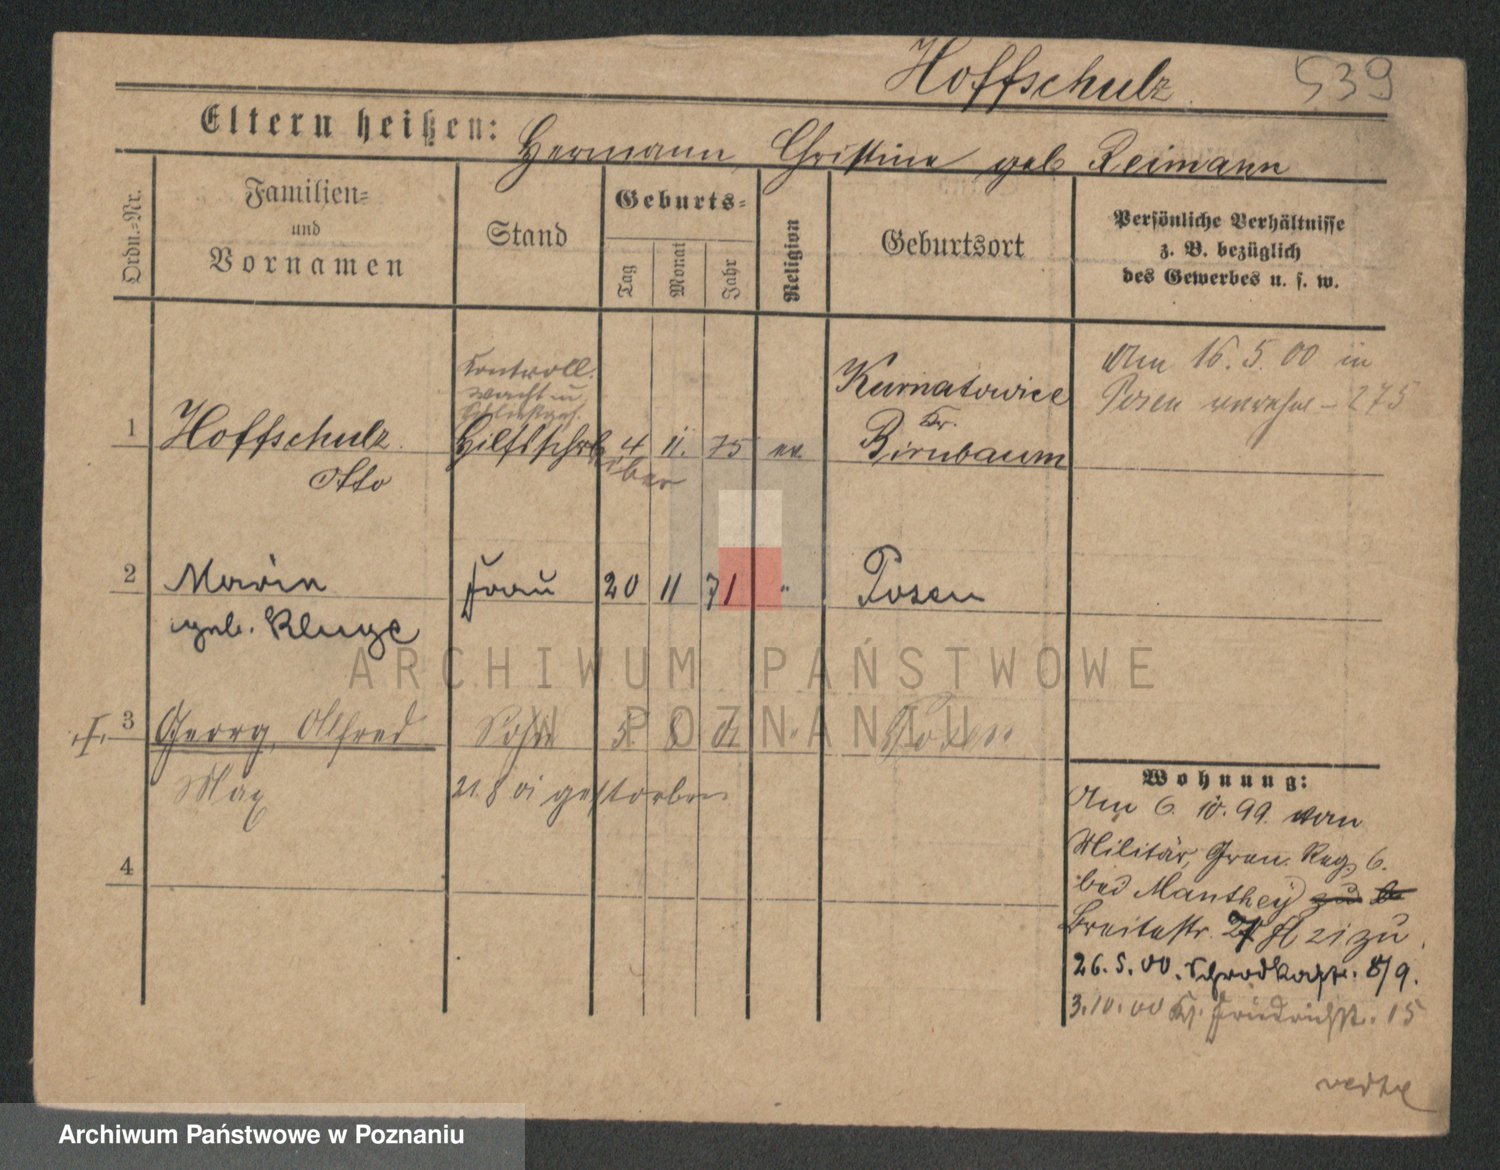 Hoffschulz 539
Eltern heißen: Hermann, Christine geb Reimann
Ordn.=Nr.
Familien=
und
Vornamen
Stand
Geburts=
Tag
Monat
Jahr
Religion
Geburtsort
Persönliche Verhältnisse
z. B. bezüglich
des Gewerbes u. s. w.
Am 16. 5. 00 in
Posen 275
Controll.
1 Hoffschulz Hilfsschrei 4 11. 75 ev.
ber
Otto
Kurnatowice
Kr.
Birnbaum
2 Maria Frau 20 11 71 " Posen
geb. Kluge
3 Georg, Alfred Sohn 5. 8 01 " Posen
Max 21. 8 01 gestorben
4
Wohnung:
Am 6. 10. 99. vom
Militär, Gren. Reg. 6.
bei Manthey
Breitestr. 21 zu
26. 5. 00. Schrodkastr. 8/9.
3. 10. 00 Kl. Friedrichstr. 15
ARCHIWUM PAŃSTWOWE
W POZNANIU
Archiwum Państwowe w Poznaniu